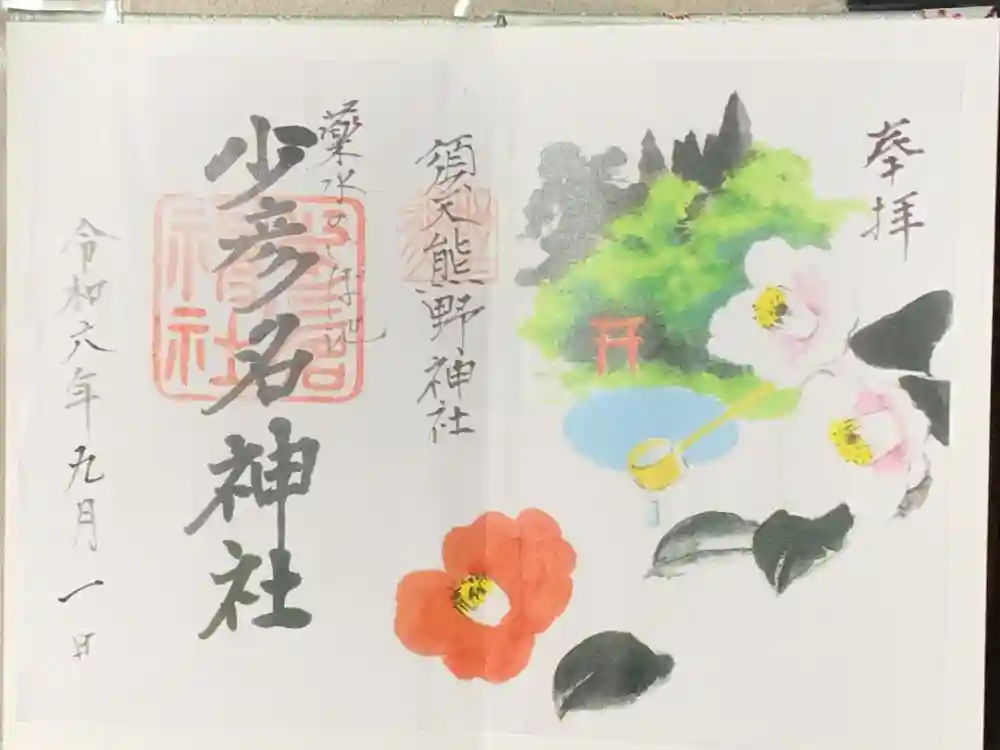 奉拝
須天熊野神社
薬水の
少彦名神社
令和六年九月一日